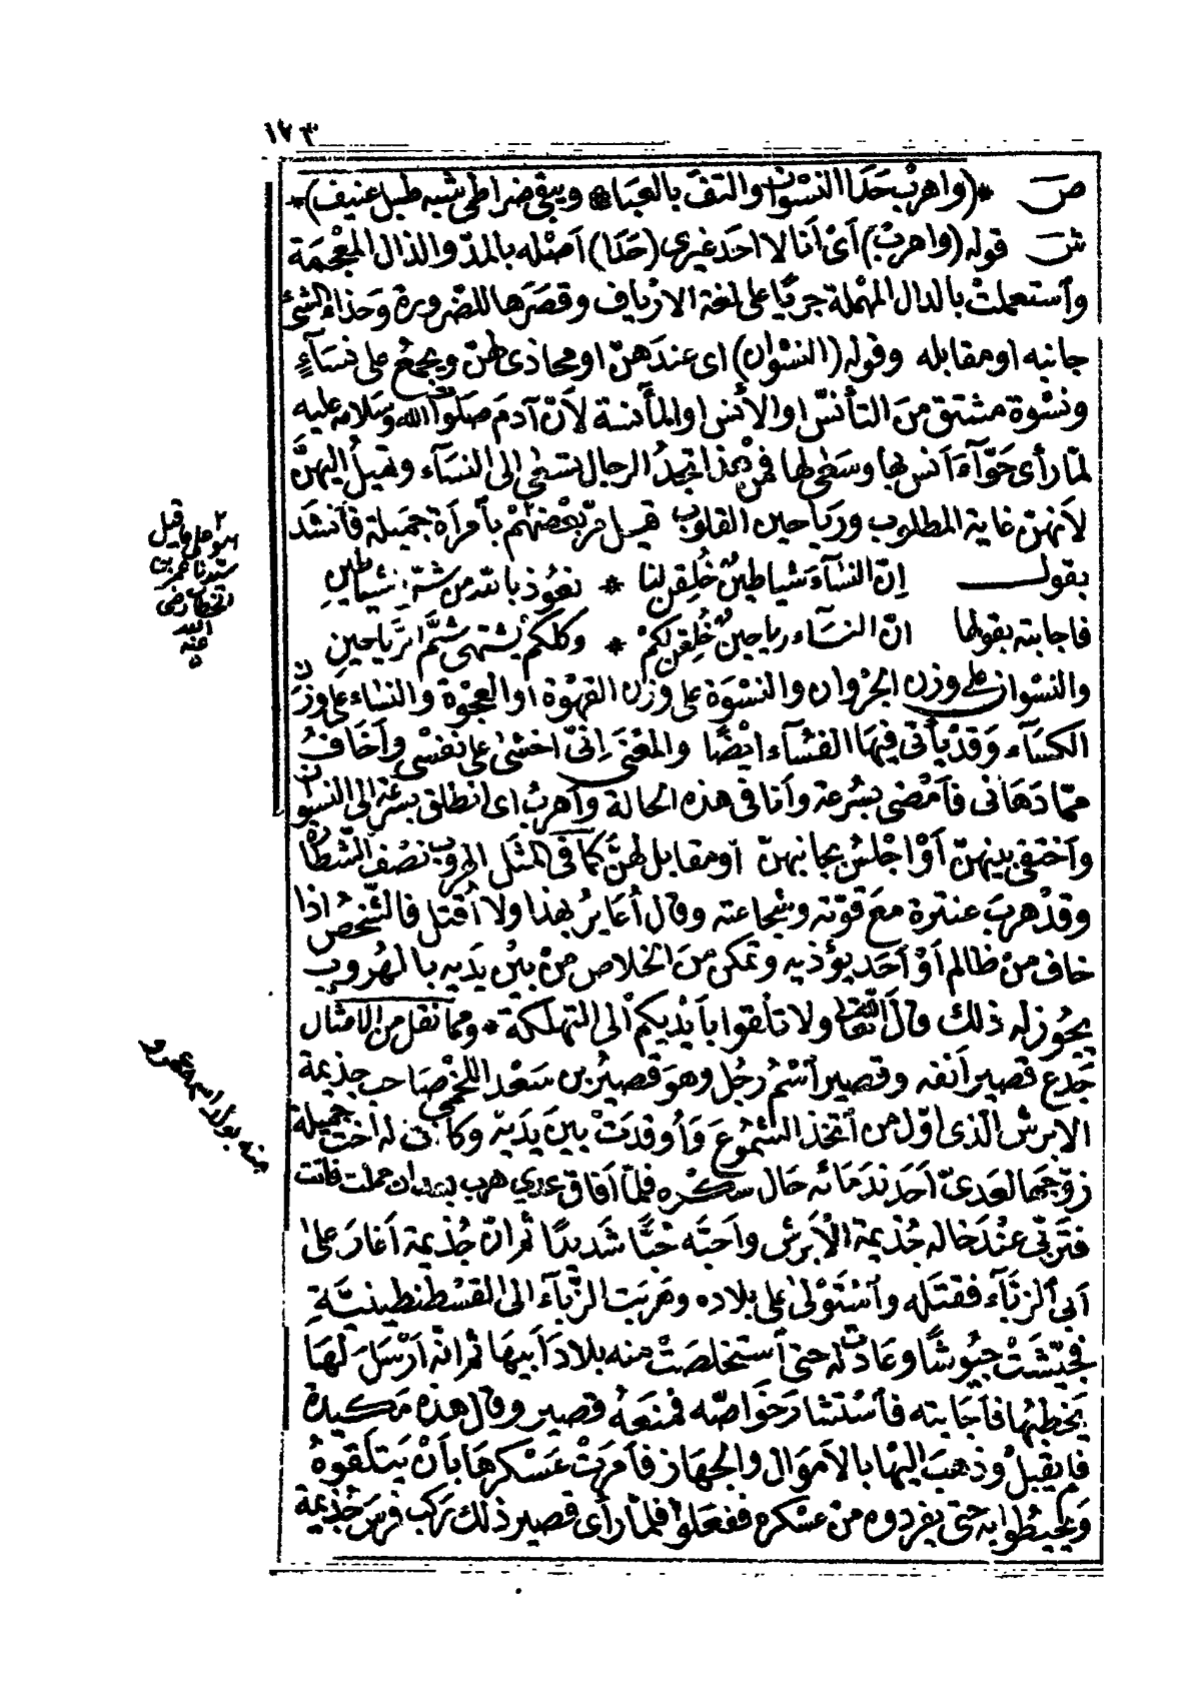 ١٢٣
ص *(واهرب حدا النسوان والتف بالعبا * ويبقى ضراطي شبه طبل عنيف)*
ش قوله (واهرب) أى أنا لا احد غيرى (حدا) أصله بالمد والذال المعجمة
وأستعملت بالدال المهملة جريا على لغة الارياف وقصرها للضرورة وحذاء الشئ
جانبه او مقابله وقوله (النسوان) اى عندهن او محاذى لهن ويجمع على نسآء
ونسوة مشتق من التأنس او الأنس او المأنسة لأن آدم صلوات الله وسلامه عليه
لما رأى حوآء أنس بها وسطى لها فمن هذا تجد الرجال تشتهى الى النسآء وتميل اليهن
لأنهن غاية المطلوب ورياحين القلوب قيل مر بعضهم بأمرأة جميلة فأنشد
يقول إن النسآء شياطين خلقن لنا * نعوذ بالله من شر الشياطين
فاجابته بقولها ان النسآء رياحين خلقن لكم * وكلكم يشتهى شم الرياحين
والنسوان على وزن الجروان والنسوة على وزن القهوة او العجوة والنساء على وزن
الكسآء وقد يأتى فيها الفشآء ايضا والمعنى إنى اخشى على نفسى وأخاف
مما دهانى فأمضى بسرعة وأنا فى هذه الحالة وأهرب اى انطلق بسرعة الى النسوان
وأختفى بينهن أو اجلس بجانبهن أو مقابل لهن كما فى المثل الهروب نصف الشطارة
وقد هرب عنترة مع قوته وشجاعته وقال أعاير بهذا ولا أقتل فالشخص اذا
خاف من ظالم أو أحد يؤذيه وتمكن من الخلاص من بين يديه بالهروب
يجوز له ذلك قال الله تعالى ولا تلقوا بأيديكم الى التهلكة * ومما نقل من الامثال
جدع قصير أنفه وقصير أسم رجل وهو قصير بن سعد اللخمى صاحب جذيمة
الابرش الذى اول من أتخذ الشموع وأوقدت بين يديه وكانت له اخت جميلة
زوجها لعدى أحد ندمائه حال سكره فلما أفاق عدي هرب بعد ان حملت فاتت
فتربى عند خاله جذيمة الأبرش وأحبه حبا شديدا ثم ان جذيمة أغار على
أبى ألزبآء فقتله وأستولى على بلاده وهربت الزبآء الى القسطنطينية
فجيشت جيوشا وعادت له حتى أستخلصت منه بلاد أبيها ثم انه أرسل لها
يخطبها فأجابته فأستشار خواصه فمنعه قصير وقال هذه مكيدة
فلم يقبل وذهب اليها بالأموال والجهاز فأمرت عسكرها بأن يتلقوه
ويحيطوا به حتى يفردوه من عسكره ففعلوا فلما رأى قصير ذلك ركب فرس جذيمة
٢
هو على وقيل
سيدنا عمر بن
الخطاب رضى
الله
عنه
منه بولد اسمه عمرو